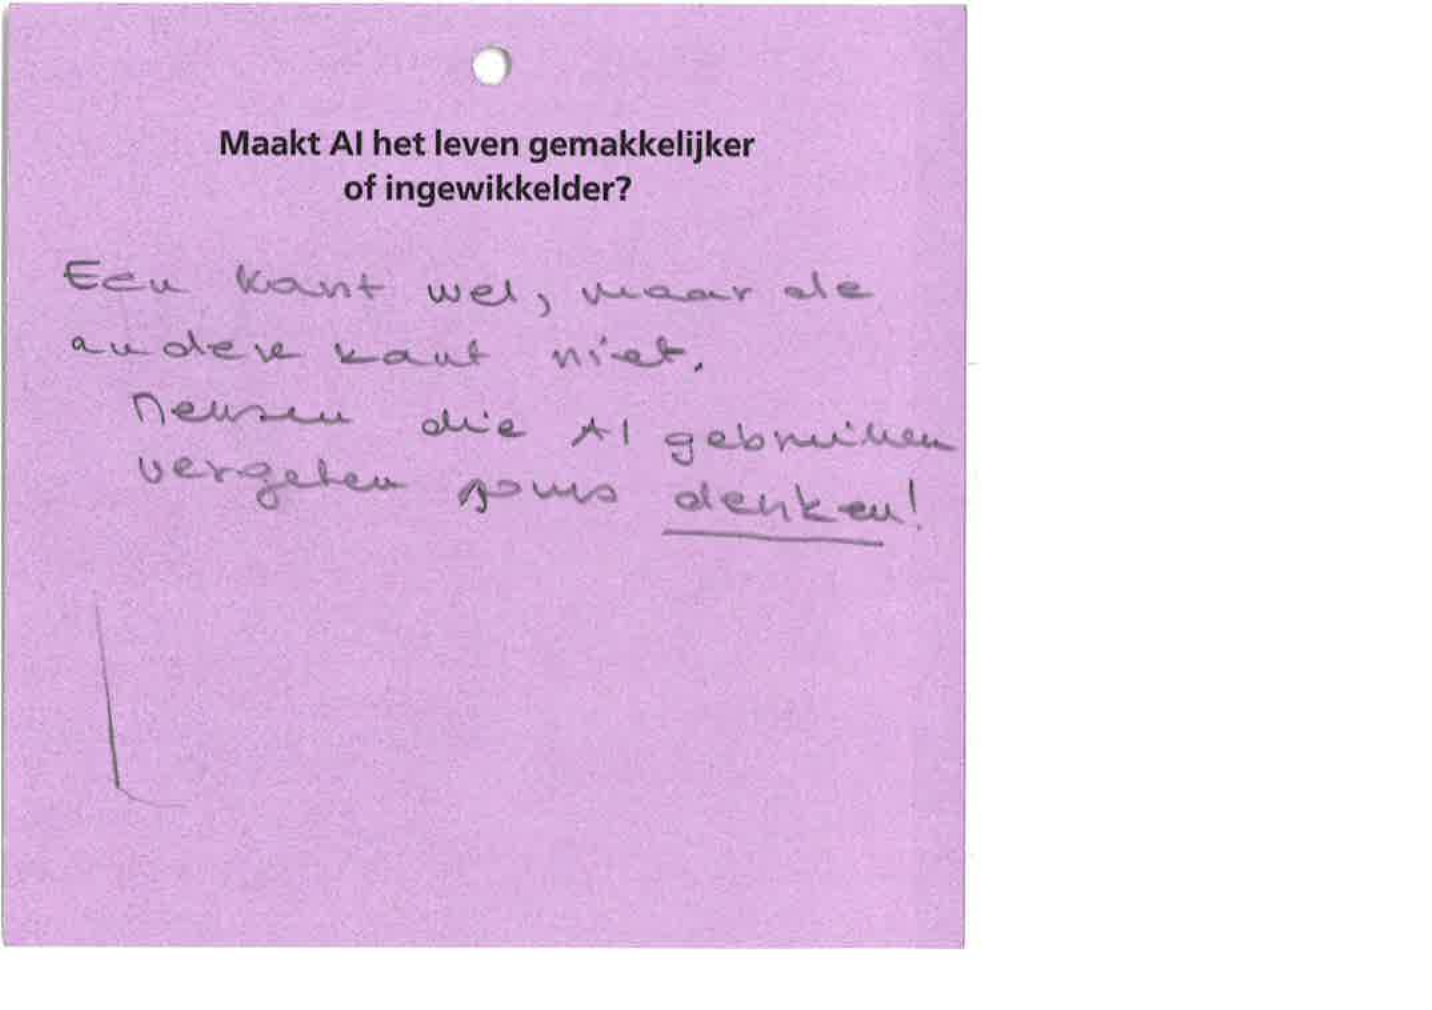 Maakt AI het leven gemakkelijker
of ingewikkelder?
Een kant wel, maar de
andere kant niet.
Mensen die AI gebruiken
vergeten soms denken!